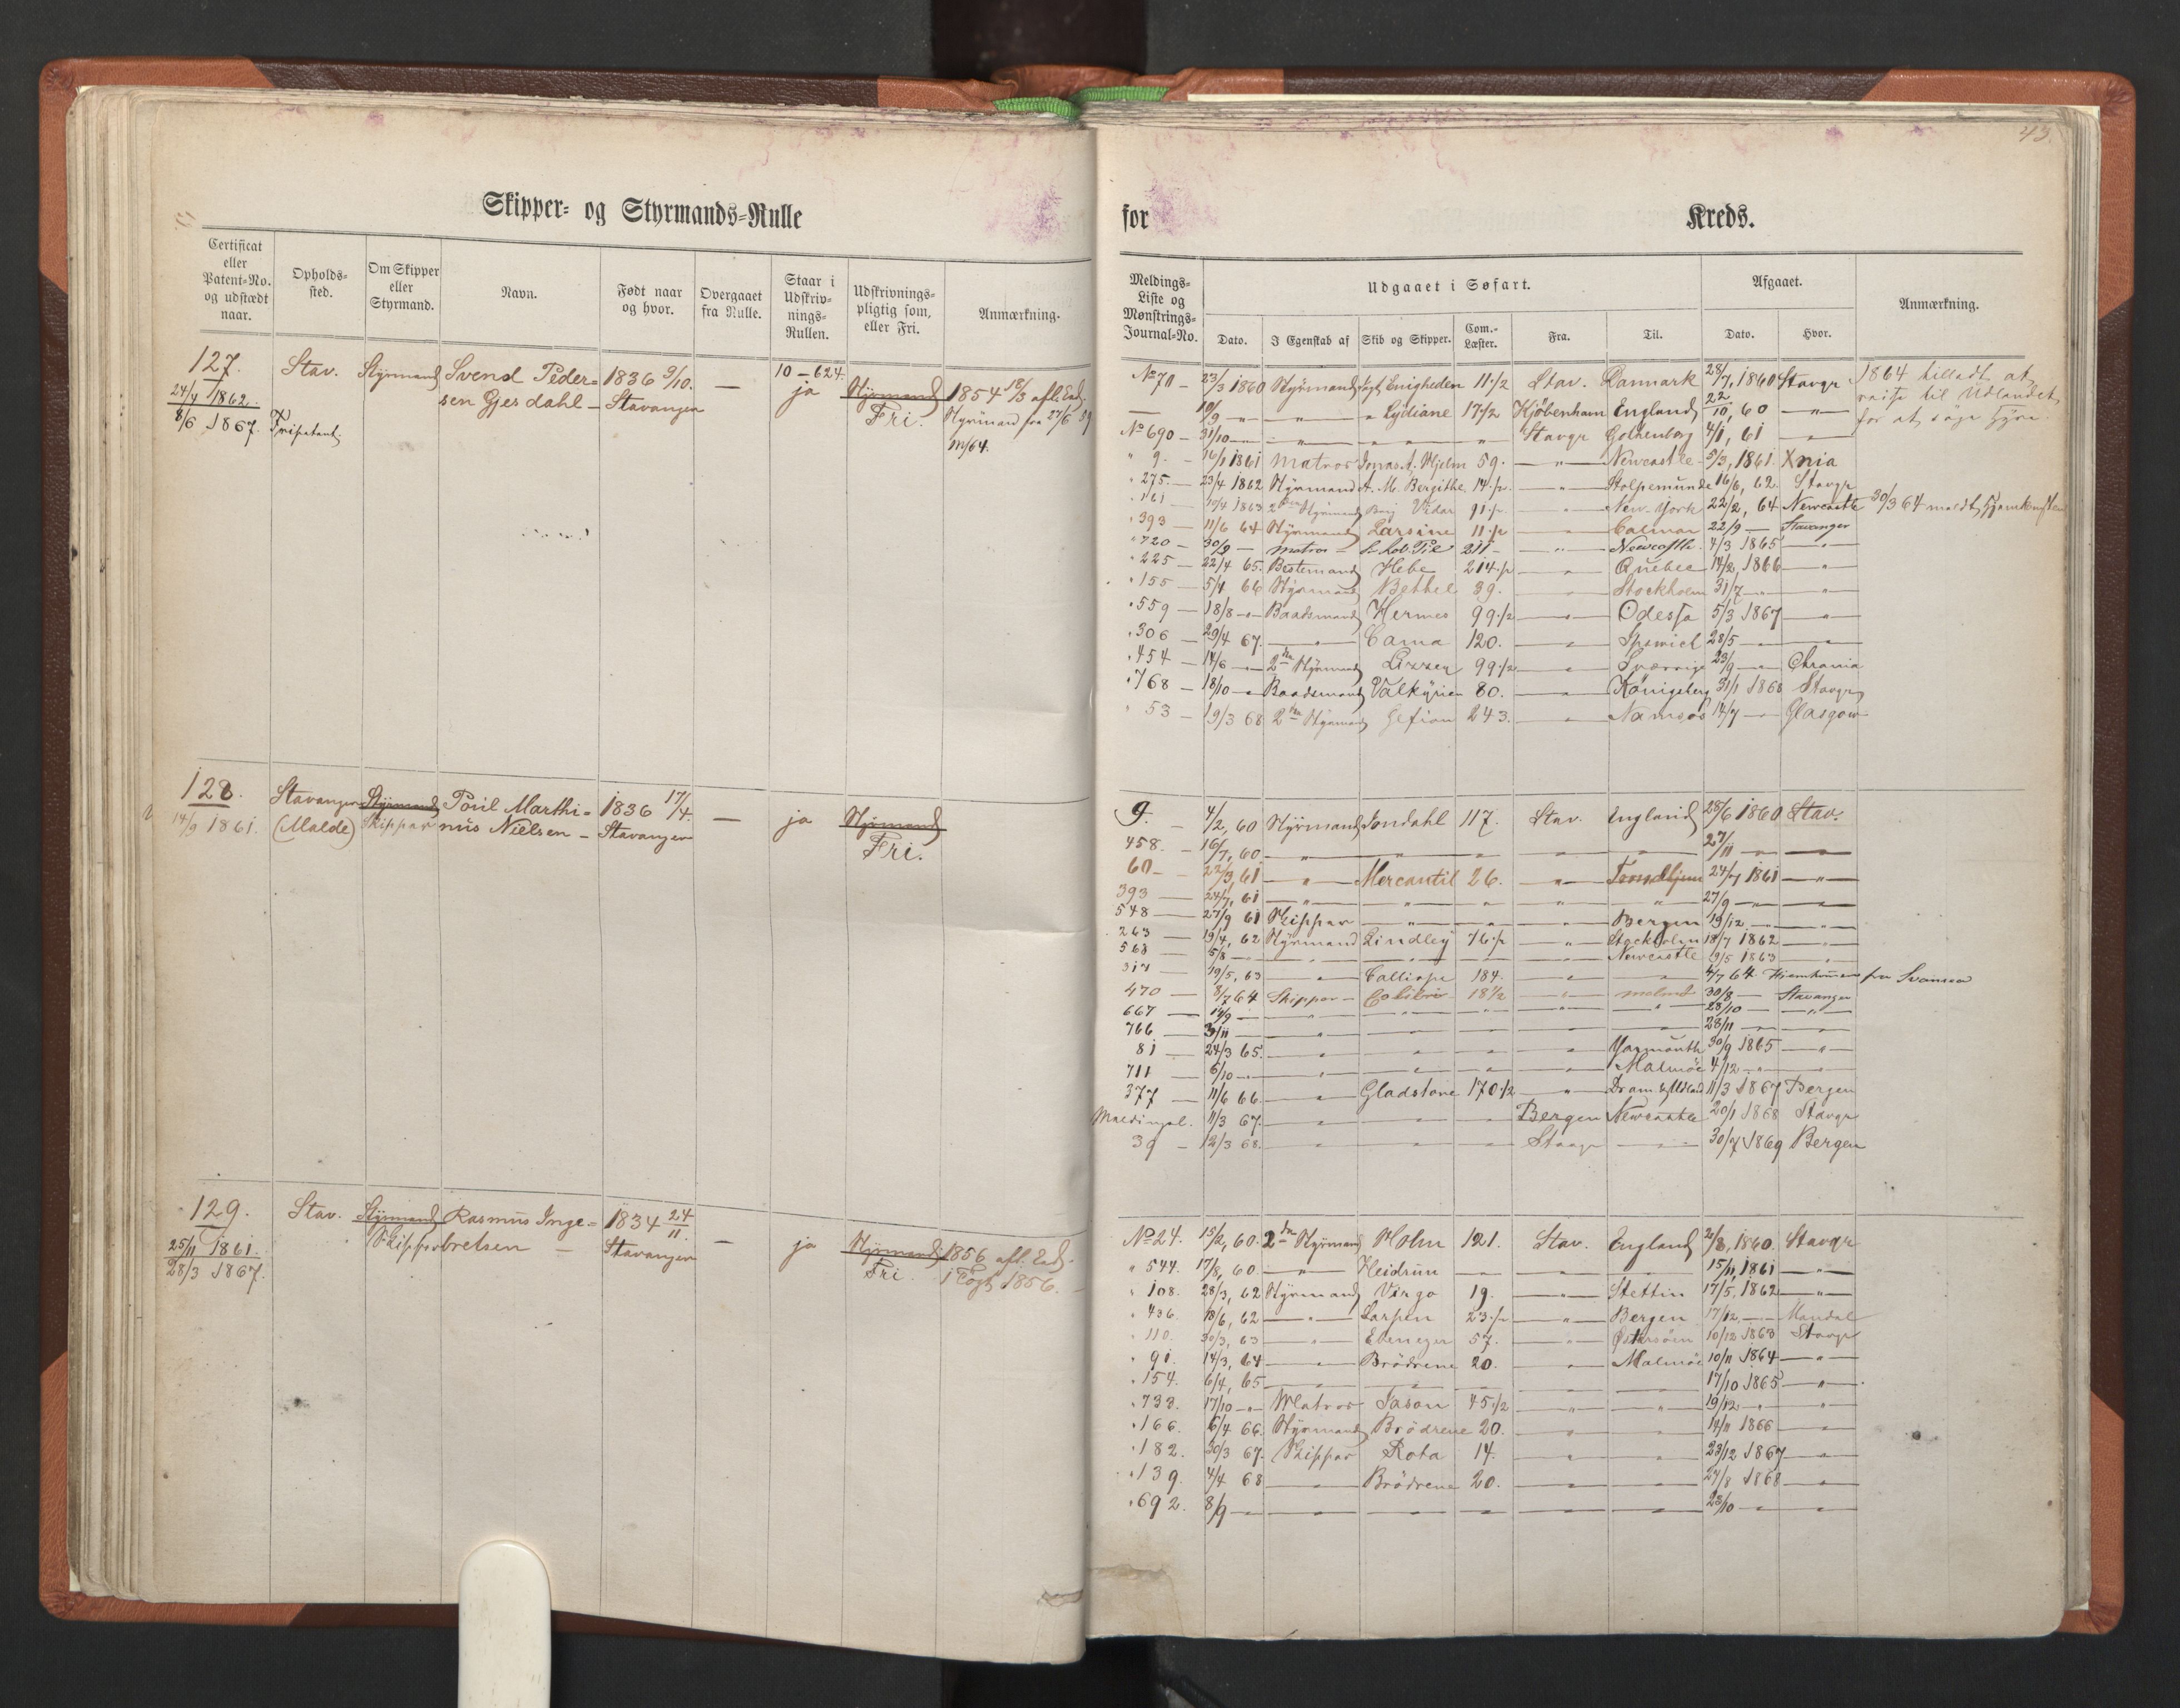 43.
Skipper= og Styrmands=Rulle
for Kreds.
Certificat eller Patent=No. og udstædt naar.
Opholds=sted.
Om Skipper eller Styrmand.
Navn.
Født naar og hvor.
Overgaaet fra Rulle.
Staar i Udskriv=nings=Rullen.
Udskrivnings=pligtig som, eller Fri.
Anmærkning.
Meldings=Liste og Mønstrings=Journal=No.
Udgaaet i Søfart.
Afgaaet.
Anmærkning.
Dato. I Egenskab af Skib og Skipper. Com.=Læster. Fra. Til. Dato. Hvor.
127. Stav. Styrmand Svend Peder= 1836 9/10. — 10 – 624. ja Styrmand 1854 18/3 afl. Ed.
24/4 1862. sen Gjesdahl – Stavanger Fri. Styrmand fra 27/6 59.
8/6 1867. Fripatent. M/64.
No 70 – 23/3 1860 Styrmand Jagt Enigheden 11 1/2 Stav. Danmark 28/7, 1860 Stavgr 1864 tilladt at
— 19/9 „ „ „ Lydiane 17 1/2 Kjöbenhavn England 22/10, 60 „ reise til Udlandet
No 690 – 31/10 „ „ „ „ Stavgr Gothenborg 4/1, 61 — for at söge Hyre
„ 9. – 16/1 1861 Matros Jonas A. Hjelm 59. „ Newcastle 5/3, 1861. Xnia
„ 275. – 23/4 1862 Styrmand A. M. Bergithe 14 1/2 „ Stolpemünde 16/6, 62. Stavgr
„ 161 – 10/4 1863 2den Styrmand Barg Vidar 91 1/2 „ New-York 22/2, 64 Newcastle 30/3 64 meldt Hjemkomsten
„ 393 – 11/6 64 Styrmand Larsine 11 1/2 „ Calmar 22/9 — Stavanger
„ 720 – 30/9 – Matros – S. Rob. Pil 211 – „ Newcastle. 4/3 1865 „
„ 225 – 22/4 65. Bestemand Hebe 214 1/2 „ Quebec 14/2, 1866 „
„ 155 – 5/4 66 Styrmand Bethel 39. „ Stockholm 31/7 „ „
„ 559 – 18/8 „ Baadsmand Hermes 99 1/2 „ Odessa 5/3 1867 „
„ 306 – 29/4 67. „ Cama 120. „ Ipswich 28/5 – „
„ 454 – 14/6 „ 2den Styrmand Lizzey 99 1/2 „ Sverrige 23/9 „ Chrania
„ 768 – 18/10 „ Baadsmand Valkyrien 80. „ Königsberg 31/1 1868 Stavgr
„ 53 – 19/3 68 2den Styrmand Gefion 243. „ Namsos 14/7 — Glasgow
128. Stavanger Styrmand Poul Marthi= 1836 17/4. — ja Styrmand
14/9 1861. (Malde) Skipper nus Nielsen – Stavanger Fri.
9. – 4/2, 60 Styrmand Jondahl 117. Stav. England 28/6 1860 Stav.
458. – 16/7, 60. „ „ „ „ „ 27/11 „ „
60 – 22/3, 61 „ Mercantil 26. „ Trondhjem 24/7 1861 „
393 – 24/7, 61 „ „ „ „ „ 27/9 „ „
548 – 27/9 61 Skipper „ „ „ Bergen 19/12 „ „
263 – 19/4, 62 Styrmand Lindley 76 1/2 „ Stockholm 18/7 1862 „
568 – 5/8 „ „ „ „ „ Newcastle 9/5 1863 „
317 – 19/5, 63 „ Calliope 184. „ „ 4/7 64. Hjemkommen fra Svansea
470 – 8/7 64 Skipper – Colibri 18 1/2 „ Malmö 30/8 – Stavanger
667 – 14/9 – „ „ „ „ „ 28/10 – „
766 – 3/11 – „ „ „ „ 28/11 „ „
81 – 24/3 65. „ „ „ „ Yarmouth 30/9 1865 „
711 – 6/10 „ „ „ „ „ Malmöe 4/12 „ „
377 – 11/6 66. „ Gladstone 170 1/2 „ Dram & Udland 11/3 1867 Bergen
11/3 67. „ „ „ Bergen Newcastle 20/1 1868 Stavgr
39 – 12/3 68. „ „ „ Stavgr „ 30/7 1869 Bergen
129. Stav. Styrmand Rasmus Inge= 1834 24/11. — ja Styrmand 1856 afl. Ed.
25/11 1861. Skipper bretsen – Stavanger Fri. 1 Togt 1856.
28/3 1867.
No 24. 15/2, 60. 2den Styrmand Holm 121. Stav. England 2/8, 1860. Stavgr
„ 544. 17/8, 60. „ Heidrun — — — 15/11, 1861 „
„ 108. 28/3, 62 Styrmand Virgo 19. „ Stettin 17/5. 1862 „
„ 436. 18/6, 62 „ Larpen 23 1/2 „ Bergen 17/12 „ Mandal
„ 110. 30/3, 63 „ Ebenezer 57. „ Östersöen 10/12 1863 Stavgr
„ 91. 14/3, 64 „ Brödrene 20. „ Malmöe 10/11 1864 „
„ 154. 6/4, 65 „ „ „ „ „ 17/10 1865 „
„ 733. 17/10 „ Matros Jason 45 1/2 „ „ 19/12 „ „
„ 166. 6/4 66. Styrmand Brödrene 20. „ „ 14/11 1866 „
„ 182. 30/3 67. Skipper Rota 14. „ „ 23/12 1867 „
„ 139. 4/4 68 „ Brödrene 20. „ „ 27/8 1868 „
„ 692. 8/9 „ „ „ „ „ „ 28/10 „ „